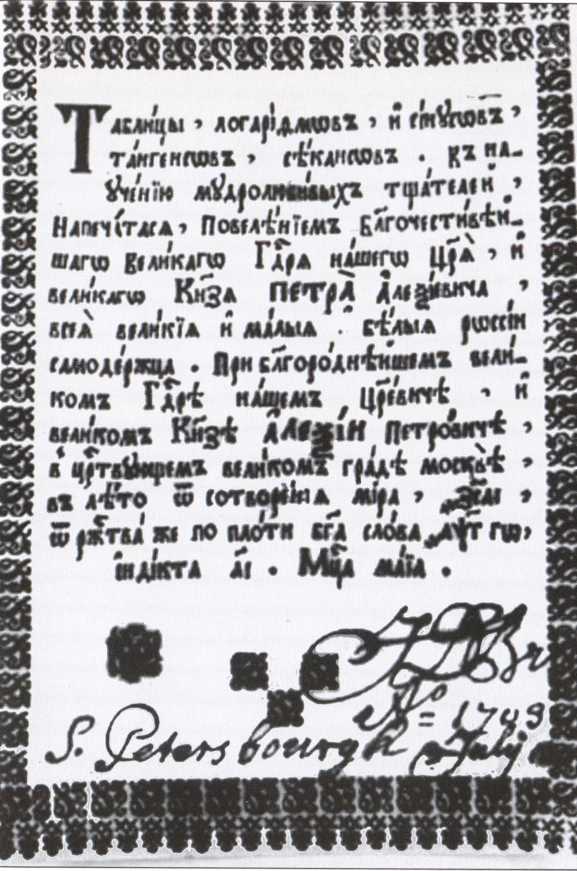 Таблицы , логарїѳмѡвъ , и҆ сѷнꙋсѡвъ ,
та́нгенсѡвъ , сѣ́кансѡвъ . къ на-
ꙋче́нїю мꙋдролюби́выхъ тщателей ,
Напеча́тасѧ , повелѣ́нїемъ бл҃гочести́вѣй-
шагѡ вели́кагѡ Гд҃рѧ на́шегѡ цр҃ѧ̀ , и҆
вели́кагѡ Кн҃зѧ ПЕТРА̀ А҆леѯі́евича ,
всеѧ̀ вели́кїѧ и҆ ма́лыѧ . бѣ́лыѧ рѡссі́и
самоде́ржца . При бл҃горо́днѣйшемъ вели́-
комъ Гд҃рѣ на́шемъ цр҃е́вичѣ , и҆
вели́комъ Кн҃зѣ А҆леѯі́и петро́вичѣ ,
в̾ ца́рствꙋющемъ вели́комъ гра́дѣ москвѣ̀ ,
въ лѣ́то ѿ сотворе́нїѧ мі́ра ,
ѿ рж҃тва́ же по пло́ти бг҃а сло́ва гѡ,
і҆нді́кта а҃і . Мц҃а ма́їѧ .
No = 1749
S. Petersbourgh July